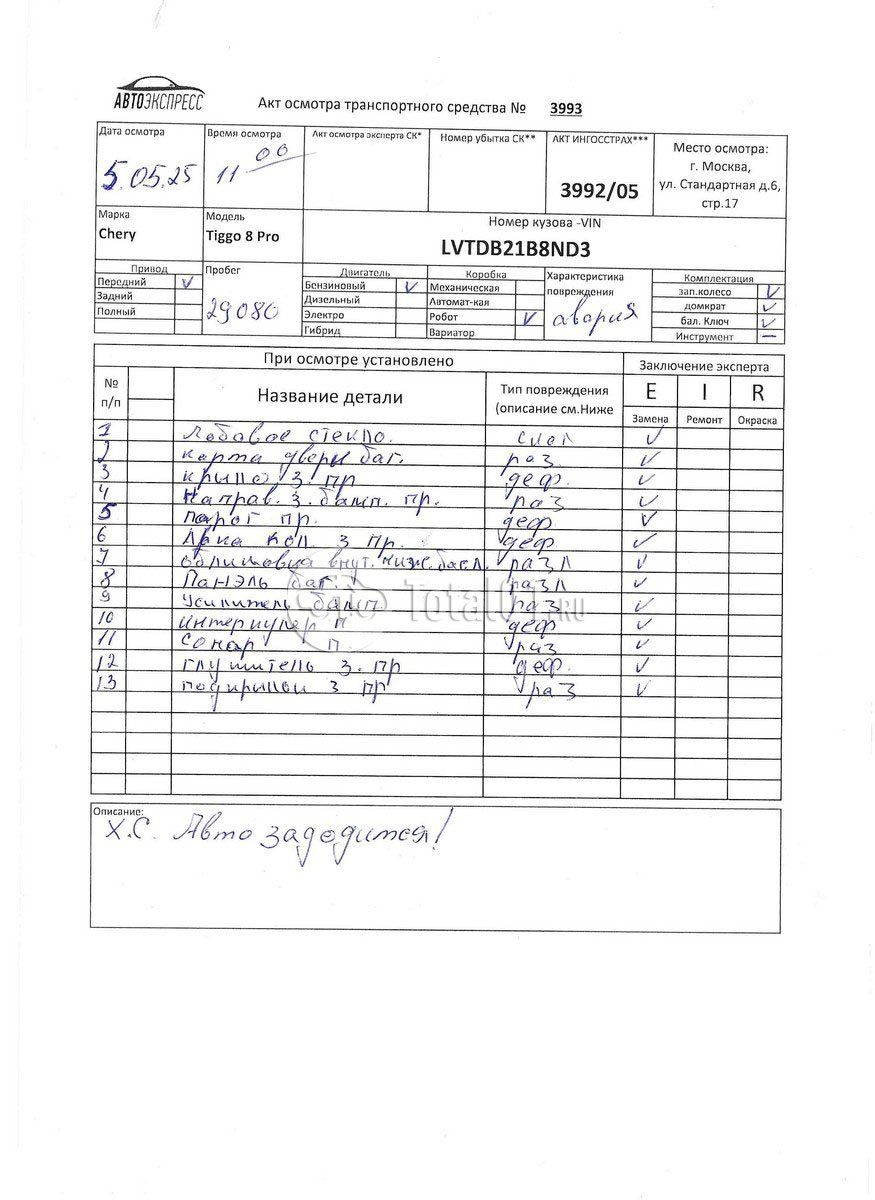 АВТОЭКСПРЕСС
Акт осмотра транспортного средства № 3993
Дата осмотра
5.05.25
Время осмотра
11 00
Акт осмотра эксперта СК*
Номер убытка СК**
АКТ ИНГОССТРАХ***
3992/05
Место осмотра:
г. Москва,
ул. Стандартная д.6,
стр.17
Марка
Chery
Модель
Tiggo 8 Pro
Номер кузова -VIN
LVTDB21B8ND3
Привод
Передний ✓
Задний
Полный
Пробег
29080
Двигатель
Бензиновый ✓
Дизельный
Электро
Гибрид
Коробка
Механическая
Автомат-кая
Робот ✓
Вариатор
Характеристика
повреждения
авария
Комплектация
зап.колесо ✓
домкрат ✓
бал. Ключ ✓
Инструмент —
При осмотре установлено
Заключение эксперта
№
п/п
Название детали
Тип повреждения
(описание см.Ниже
E I R
Замена Ремонт Окраска
1 Лобовое стекло. ✓
2 карта двери баг. раз ✓
3 крыло з. пр деф. ✓
4 Направ. з. бамп. пр. раз ✓
5 порог пр. деф ✓
6 Арка кол. з пр. деф ✓
7 облицовка внут. ниж. баг. разл ✓
8 Панэль баг. разл ✓
9 Усилитель бамп раз ✓
10 интеркулер п деф ✓
11 Сонар п. раз ✓
12 глушитель з. пр деф. ✓
13 з пр раз ✓
Total01.RU
Описание:
Х.С. Авто заводится!